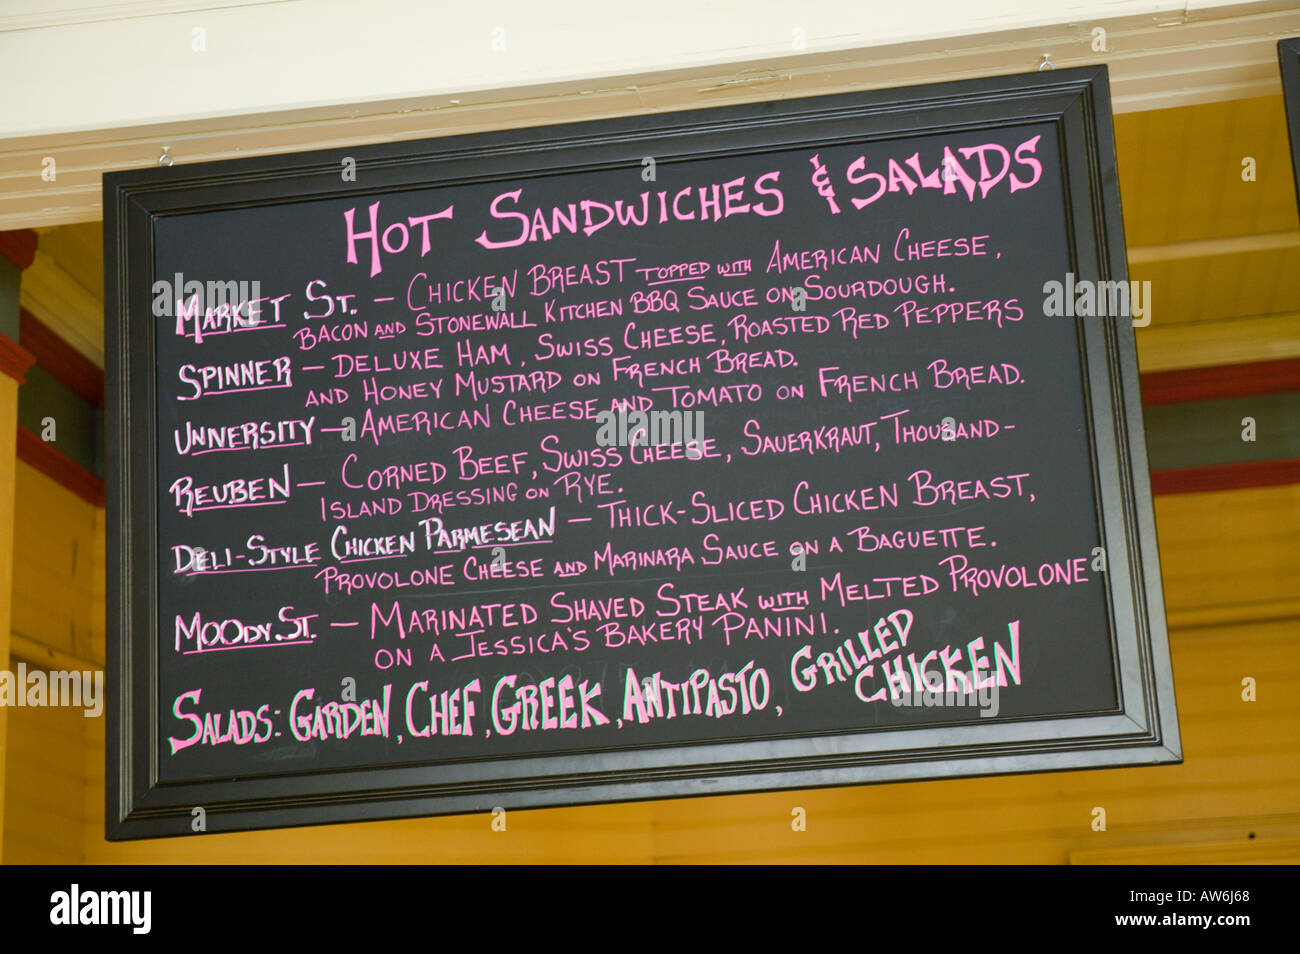 HOT SANDWICHES & SALADS
MARKET ST. – CHICKEN BREAST TOPPED WITH AMERICAN CHEESE,
BACON AND STONEWALL KITCHEN BBQ SAUCE ON SOURDOUGH.
SPINNER – DELUXE HAM, SWISS CHEESE, ROASTED RED PEPPERS
AND HONEY MUSTARD ON FRENCH BREAD.
UNIVERSITY – AMERICAN CHEESE AND TOMATO ON FRENCH BREAD.
REUBEN – CORNED BEEF, SWISS CHEESE, SAUERKRAUT, THOUSAND-
ISLAND DRESSING ON RYE.
DELI-STYLE CHICKEN PARMESEAN – THICK-SLICED CHICKEN BREAST,
PROVOLONE CHEESE AND MARINARA SAUCE ON A BAGUETTE.
MOODY ST. – MARINATED SHAVED STEAK WITH MELTED PROVOLONE
ON A JESSICA'S BAKERY PANINI.
SALADS: GARDEN, CHEF, GREEK, ANTIPASTO, GRILLED
CHICKEN
alamy
alamy
Image ID: AW6J68
www.alamy.com